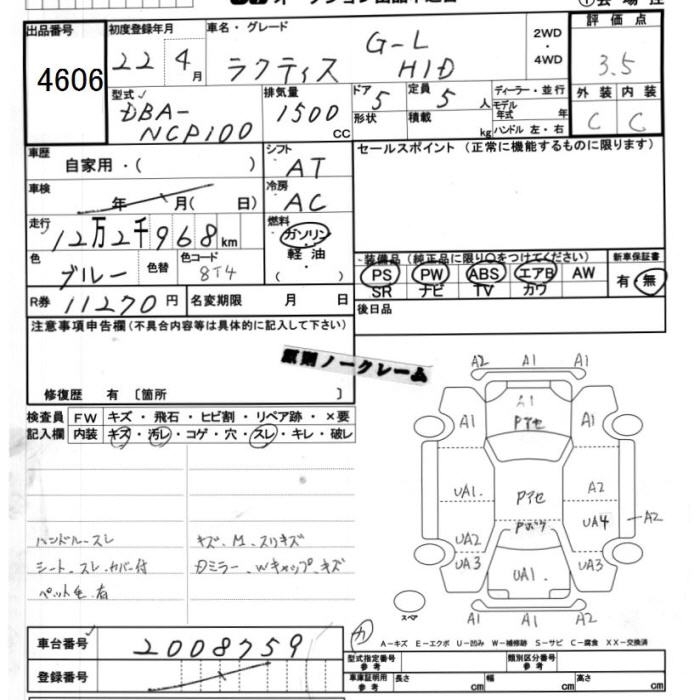 出品番号
4606
初度登録年月
22 4月
車名・グレード
ラクティス
G-L
HID
2WD
・
4WD
評価点
3.5
外装 内装
C C
型式
DBA-
NCP100
排気量
1500
CC
ドア
5
形状
定員
5人
積載
kg
ディーラー・並行
モデル
年式 年
ハンドル 左・右
車歴
自家用・( )
シフト
AT
車検
年 月( 日)
冷房
AC
走行
12万2千968km
燃料
ガソリン
軽油
( )
色
ブルー
色替
色コード
8T4
R券 11270円
名変期限 月 日
セールスポイント (正常に機能するものに限ります)
装備品 (純正品に限り○をつけてください)
PS PW ABS エアB AW
SR ナビ TV カワ
新車保証書
有・無
後日品
注意事項申告欄(不具合内容等は具体的に記入して下さい)
原則ノークレーム
修復歴 有 〔箇所 〕
検査員 FW キズ・飛石・ヒビ割・リペア跡・×要
記入欄 内装 キズ・汚レ・コゲ・穴・スレ・キレ・破レ
ハンドルースレ
シート、スレ、カバー付
ペット毛有
キズ、M、スリキズ
Dミラー、Wキャップ、キズ
A2 A1 A1
A1
A1 Pアセ A1
UA1. Pアセ A2
Pボケ UA4 A2
UA2
UA3 UA1. UA3
スペア
A1 A1 A2
車台番号
2008759
登録番号
カ
A-キズ E-エクボ U-凹み W-補修跡 S-サビ C-腐食 XX-交換済
型式指定番号
参考
類別区分番号
参考
車庫証明用
参考
長さ cm 幅 cm 高さ cm